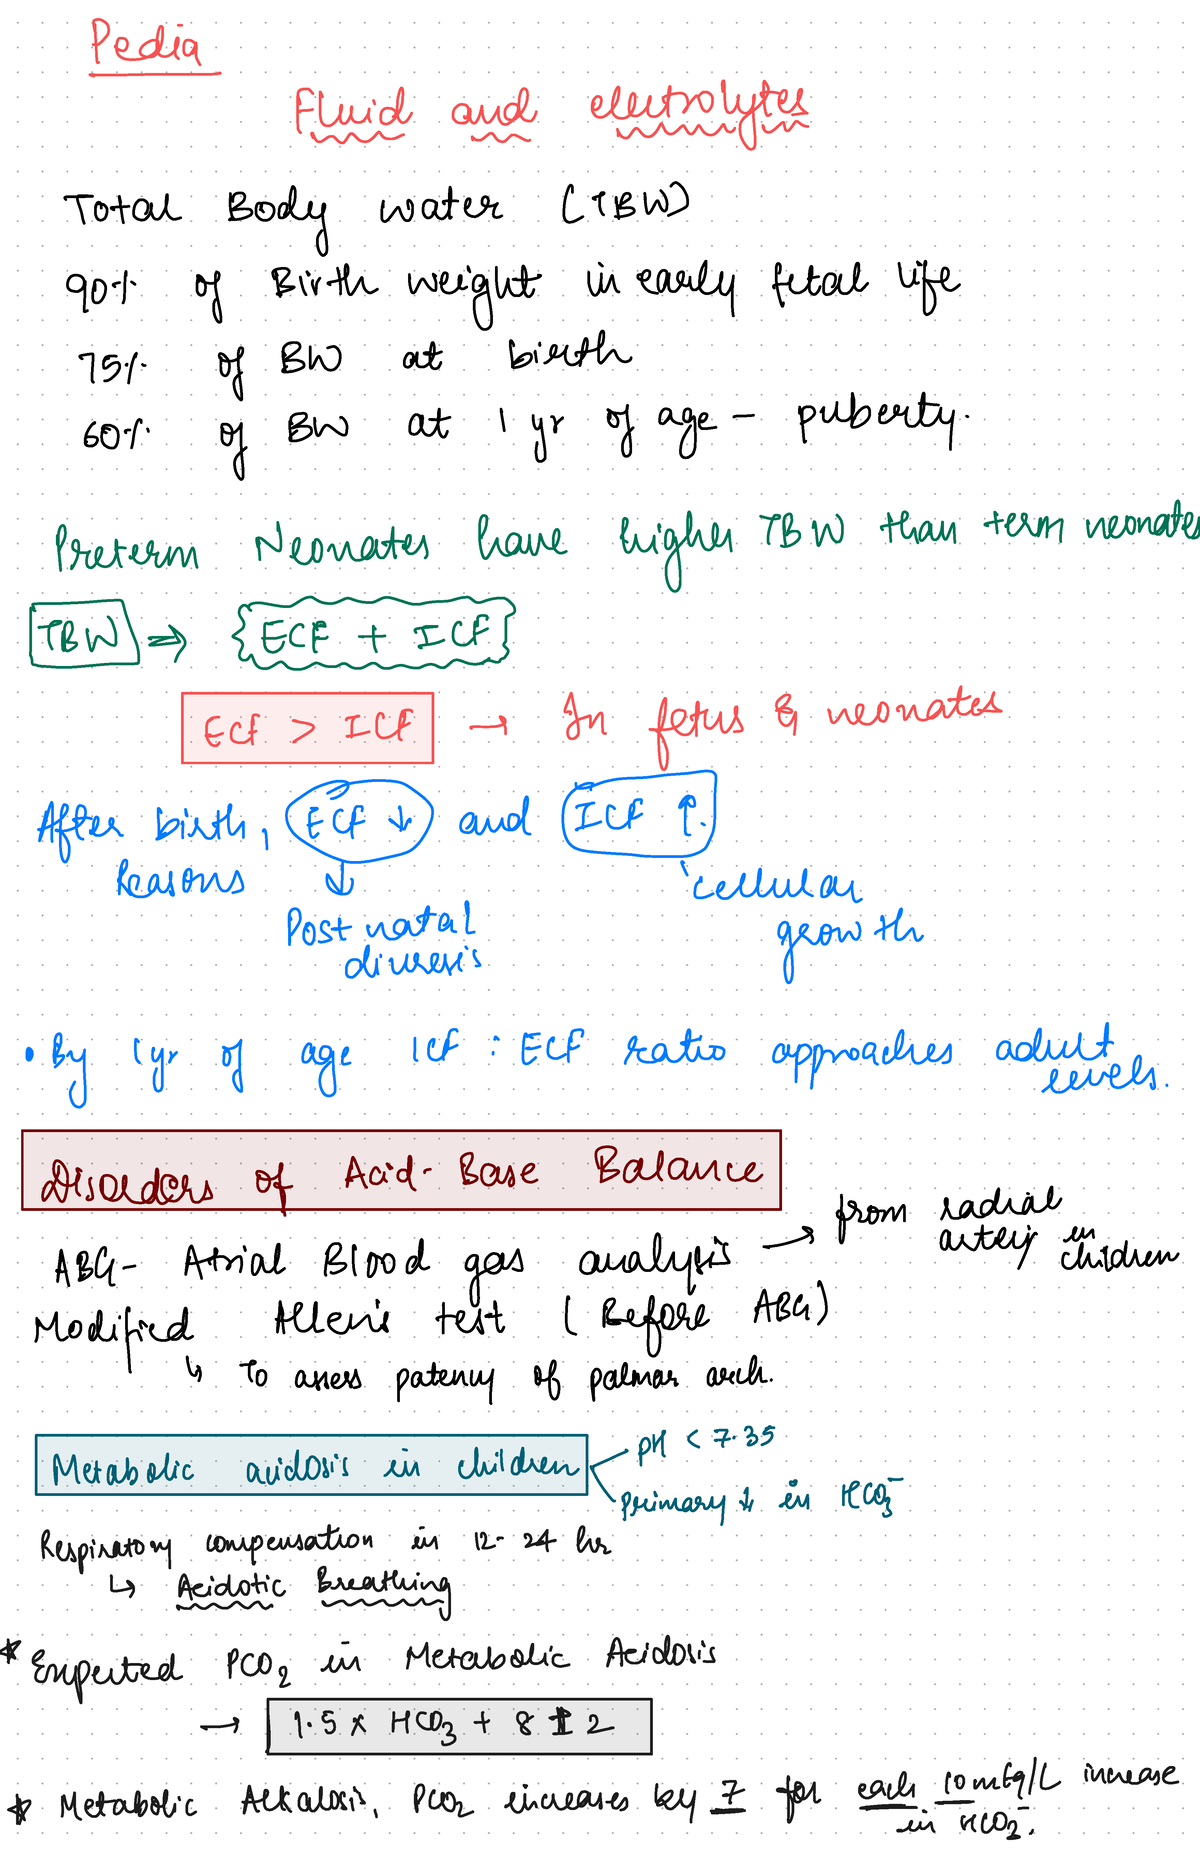 Pedia
Fluid and electrolytes
Total Body water (TBW)
90% of Birth weight in early fetal life
75% of BW at birth
60% of BW at 1 yr of age - puberty.
Preterm Neonates have higher TBW than term neonates
TBW ⇒ {ECF + ICF}
ECF > ICF → In fetus & neonates
After birth, ECF ↓ and ICF ↑.
Reasons ↓ cellular
Post natal growth
diuresis
• By 1yr of age ICF : ECF ratio approaches adult
levels.
Disorders of Acid-Base Balance
ABG- Atrial Blood gas analysis → from radial
artery in
children
Modified Allen's test (Before ABG)
↳ To assess patency of palmar arch.
Metabolic acidosis in children
pH < 7.35
primary ↓ in HCO3-
Respiratory compensation in 12-24 hr
↳ Acidotic Breathing
* Expected PCO2 in Metabolic Acidosis
→ 1.5 x HCO3 + 8 ± 2
* Metabolic Alkalosis, PCO2 increases by 7 for each 10 mEq/L increase
in HCO3-.